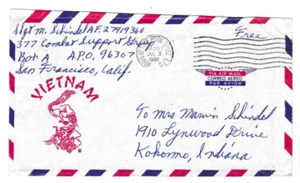 Sgt M. Schindel A.F. 27919360
377 Combat Support Group
Box A A.P.O. 96307
San Francisco, Calif.
Free
VIA AIR MAIL
CORREO AEREO
PAR AVION
VIETNAM
To Mrs Marvin Schindel
1910 Lynwood Drive
Kokomo, Indiana